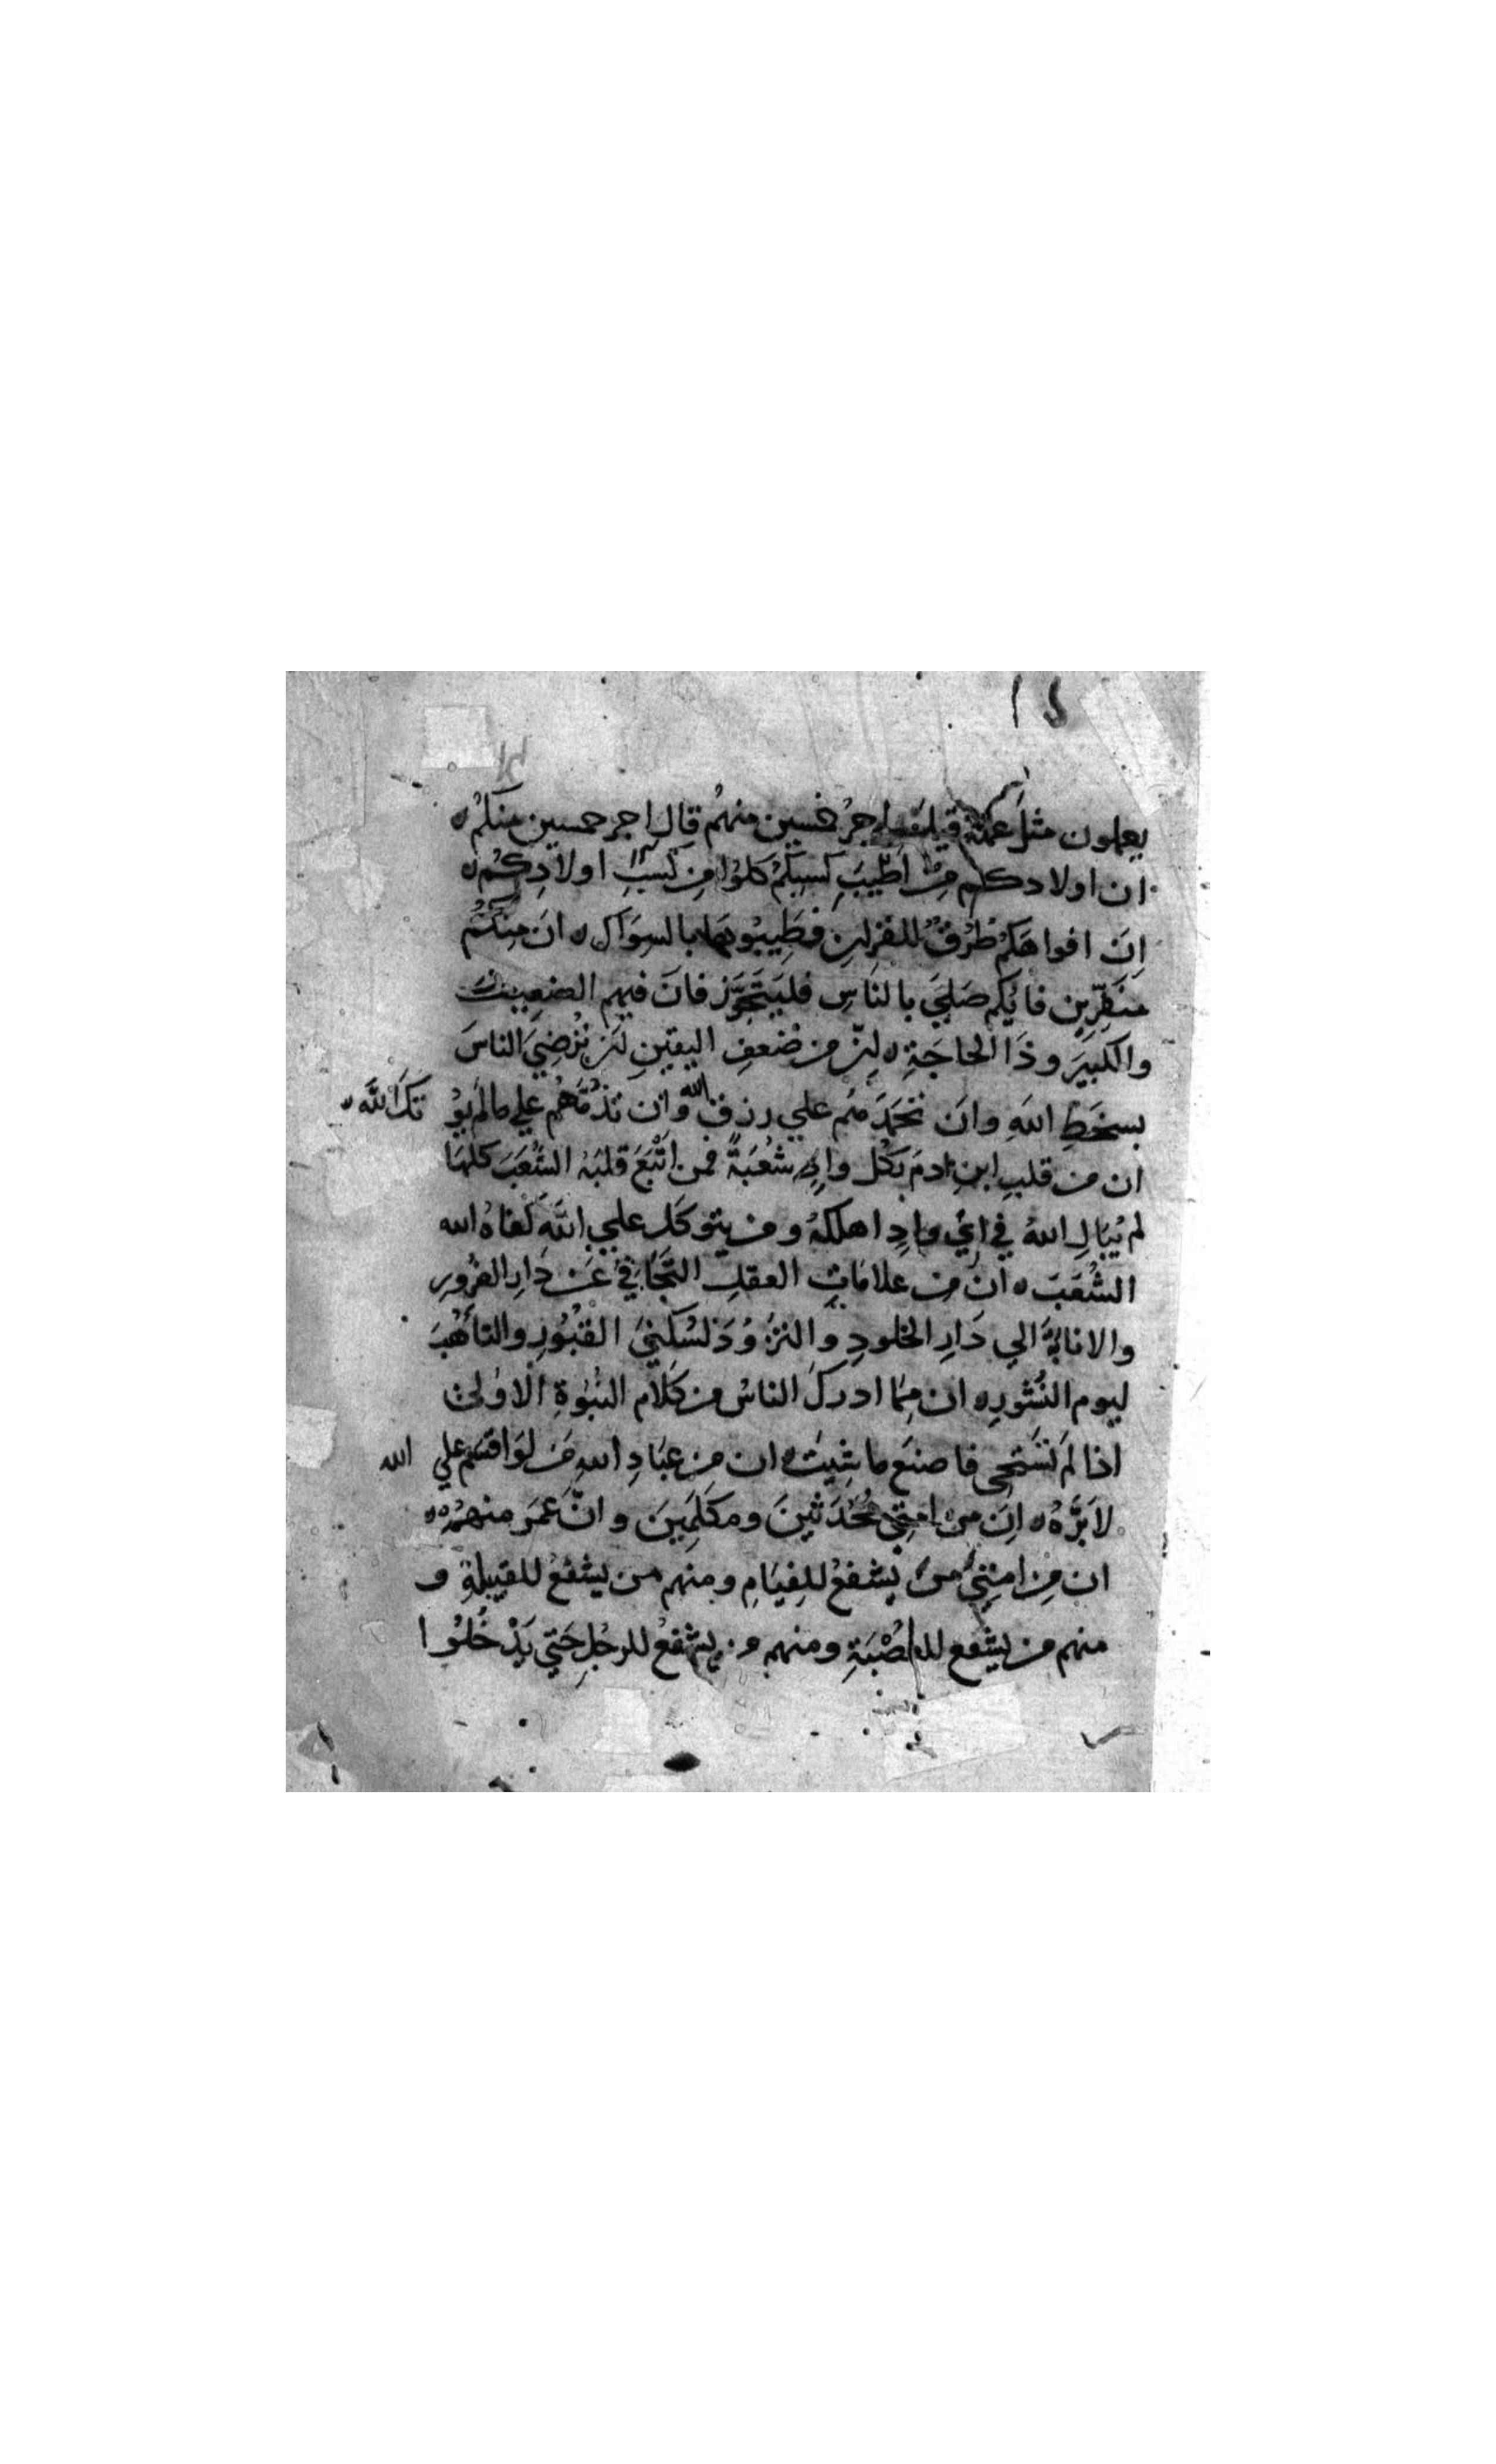 يعملون مثل عمله قيل اجرُ خمسين منهُم قال اجر خمسين منكمُ ه
ان اولادكم مِن اَطْيَبِ كَسْبِكُمْ كلوُا مِن كَسْبِ اولادِكُمْ ه
اِنَ افواهَكُمْ طُرُقٌ للقرانِ فطَيِبُوها بالسِوَاك ه انَ مِنكُمْ
منَفِّرِين فايُكم صَلّيَ بالنَاسِ فليَتَجَوَّز فانَ فيهم الضعِيفَ
والكَبِيرَ وذَا الحاجَةِ ه اِنّ من ضُعفِ اليقينِ اَن تُرْضِيَ الناسَ
بسخَطِ اللهِ وانَ تحْمَدَهُم علي رزق الله وان تذُمَّهُم علي مالم يُؤ تكَ اللّه ه
ان من قلبِ ابنِ ادمَ بكُل وادٍ شُعْبَةً فمن اتْبَعَ قلبَهُ الشُعَبَ كلهَا
لم يُبَالِ اللهُ في ايِّ وادٍ اهلكهُ ومن يتوكل علي اللّهِ كفاهُ الله
الشُعَبَ ه ان مِن علامَاتِ العقلِ التجَافيَ عَن دَارِ الغُرُورِ
والانابةَ الي دَارِ الخلودِ والتزوُدَ لسُكنيَ القُبُورِ والتأهُبَ
ليوم النُشورِ ه ان مِمَا ادرك الناسُ من كَلام النبُوةِ الاولي
اذا لَم تَسْتَحِي فاصنَع ما شِيت ه ان مِن عِبَادِ اللهِ مَن لوَ اقسَمَ علي الله
لاَبَرَّهُ ه اِنَ من امتِي مُحُدَثينَ ومكَلَمِينَ وانَّ عمَرَ منهمُ ه
ان مِن امتِيَ من يشفعُ للفِيَامِ ومنهم من يشفعُ للقبيلةِ و
منهم من يشفع للعُصْبَةِ ومنهم من يشفعُ للرجُلِ حَتي يَدْخُلوُا